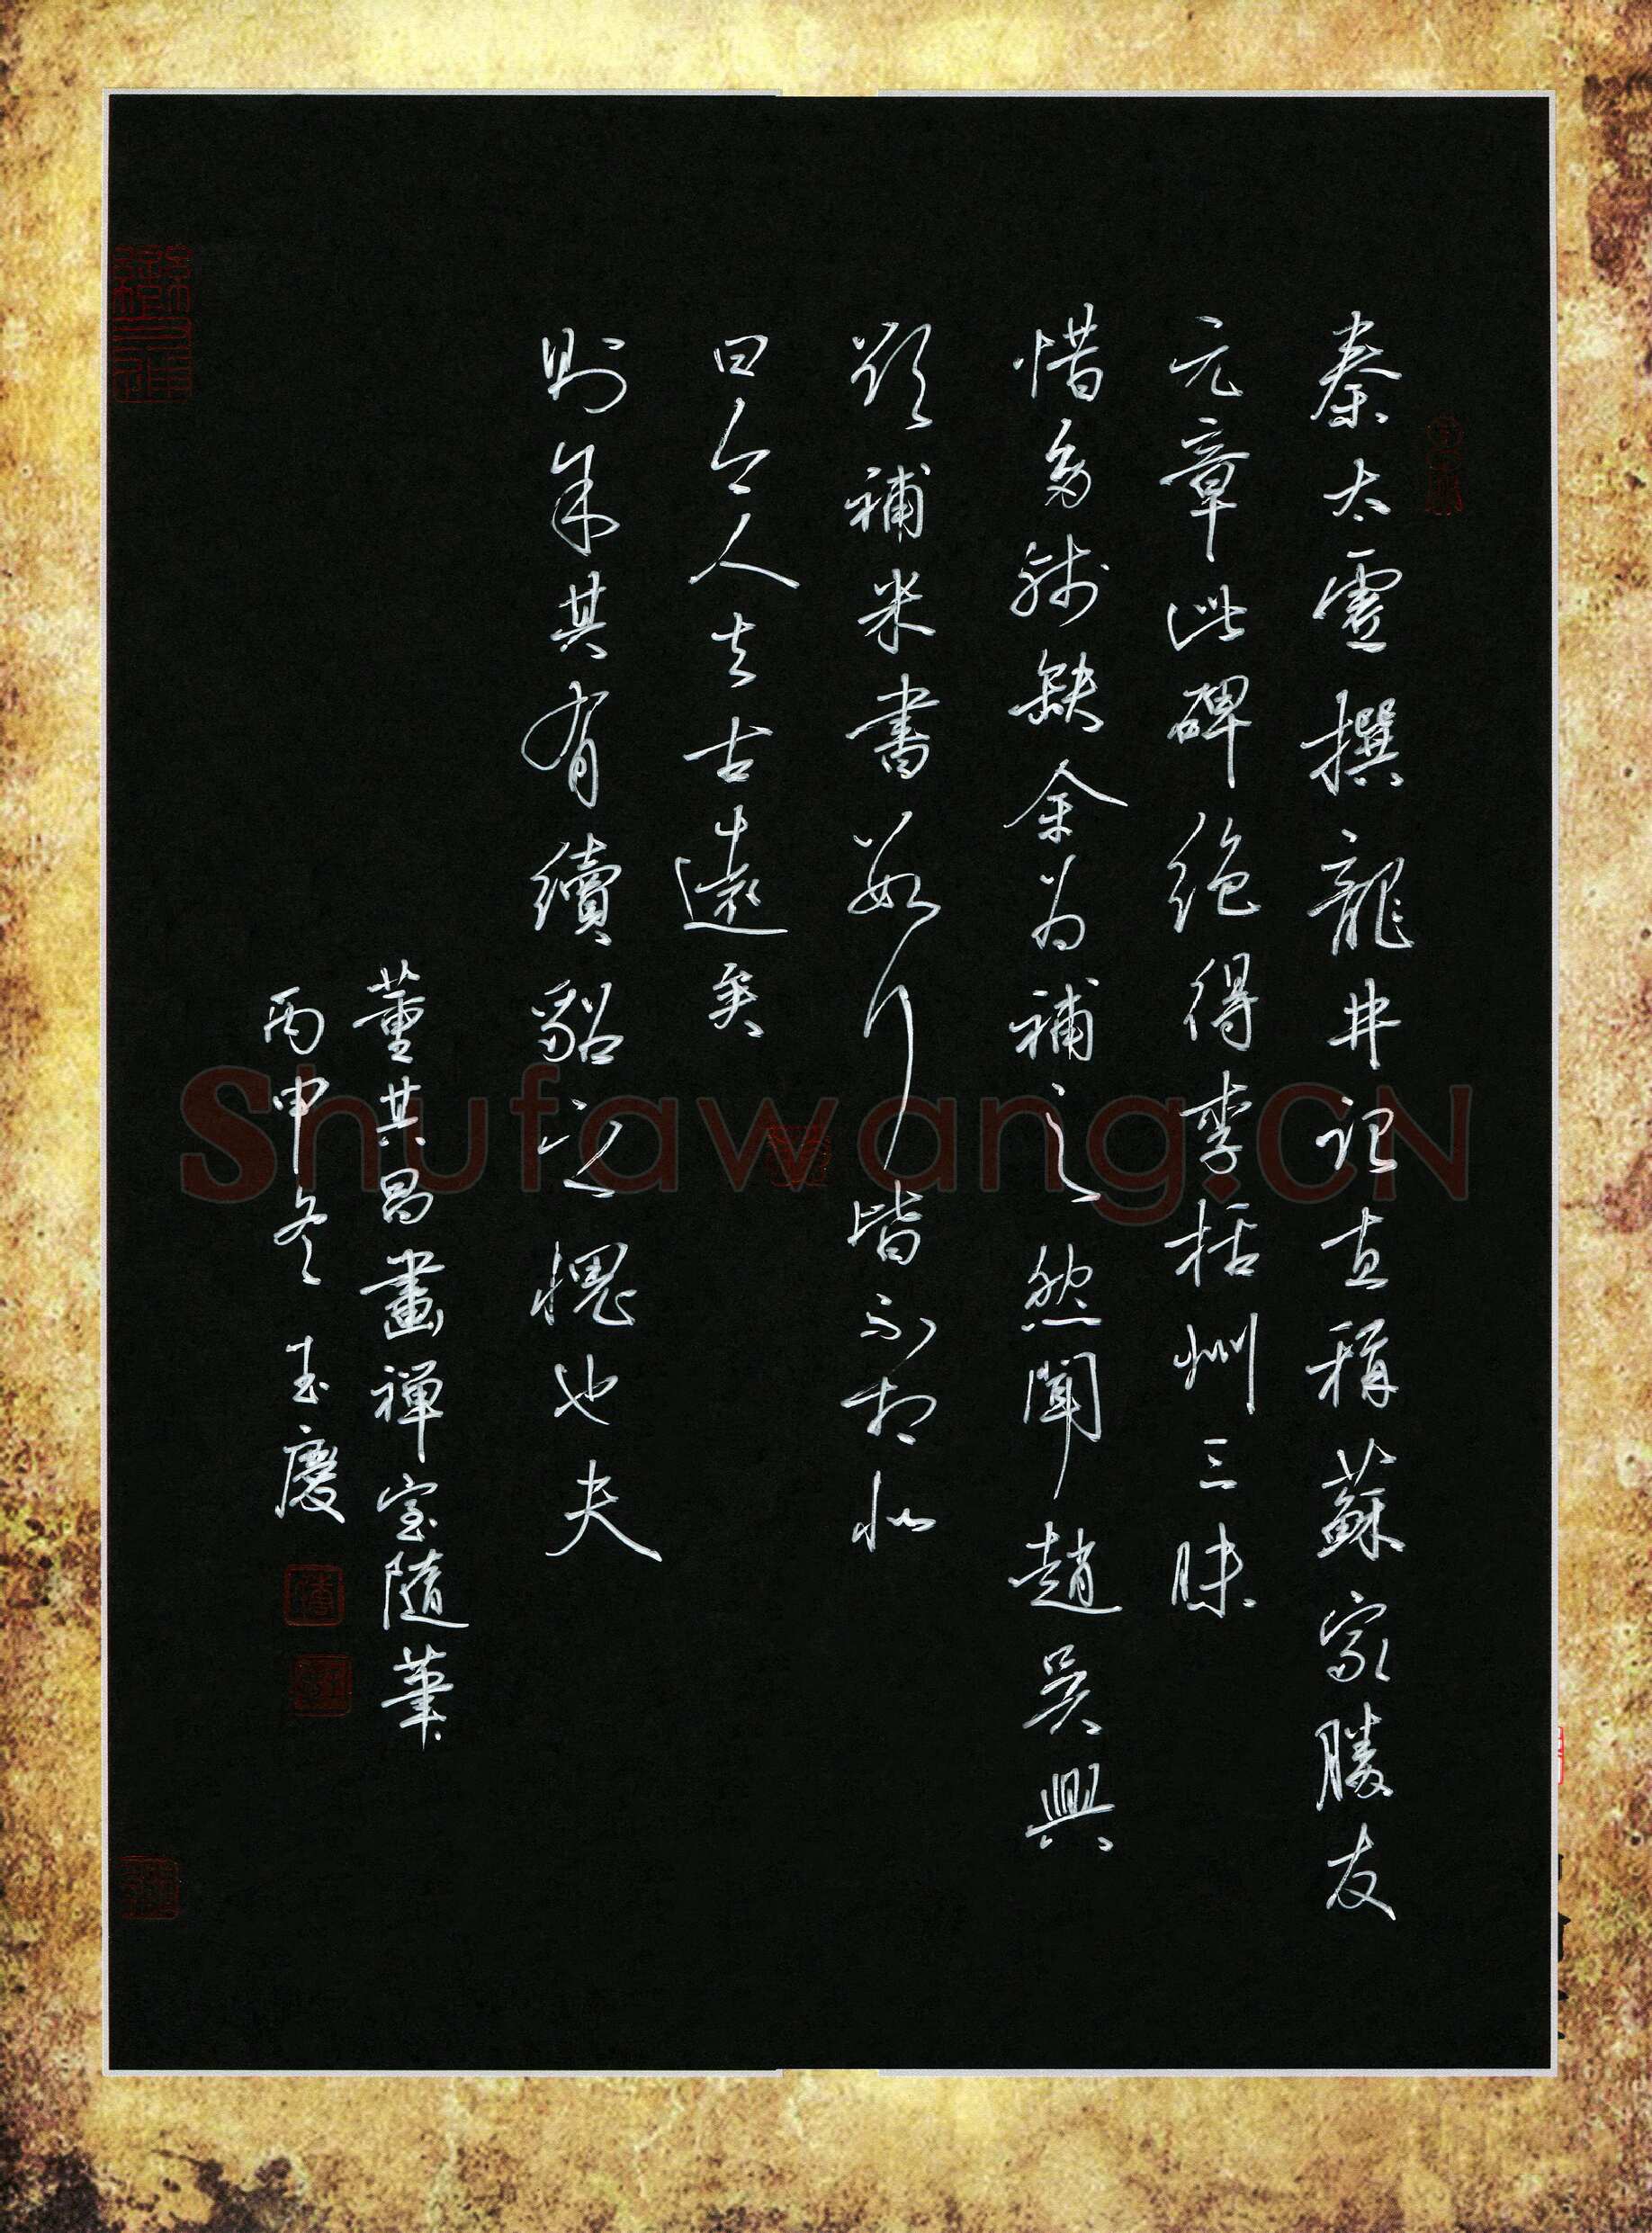 秦太虛撰龍井記直稱蘇家勝友
元章此碑絕得李括州三昧
惜多殘缺余為補之然聞趙吳興
欲補米書數行皆不相似
曰今人去古遠矣
則余其有續貂之愧也夫
董其昌畫禪室隨筆
丙申冬玉慶
Shufawang.CN